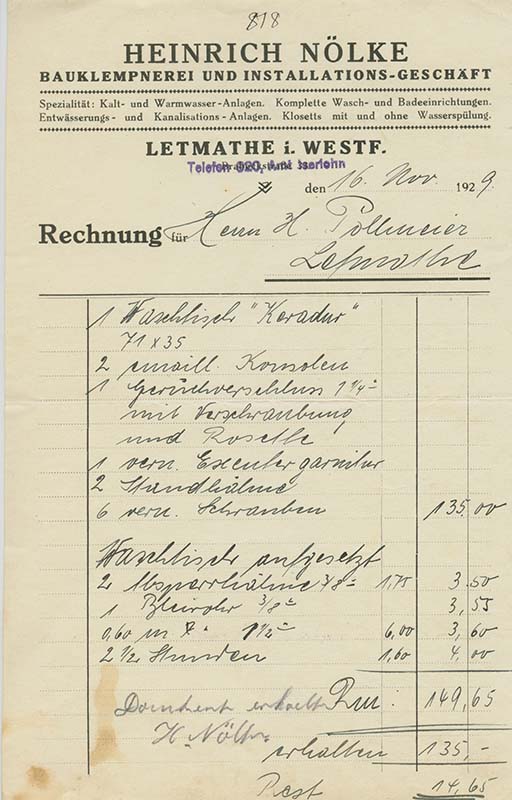 818
HEINRICH NÖLKE
BAUKLEMPNEREI UND INSTALLATIONS-GESCHÄFT
Spezialität: Kalt- und Warmwasser-Anlagen. Komplette Wasch- und Badeeinrichtungen.
Entwässerungs- und Kanalisations-Anlagen. Klosetts mit und ohne Wasserspülung.
LETMATHE i. WESTF.
Telefon 620, Amt Iserlohn
den 16. Nov. 1929.
Rechnung für Herrn H. Pollmeier
Letmathe
1 Waschtisch "Keradur"
71 x 35
2 emaill. Konsolen
1 Geruchverschluss 1 1/4"
mit Verschraubung
und Rosette
1 vern. Excentergarnitur
2 Standhähne
6 vern. Schrauben 135,00
Waschtisch aufgesetzt
2 Absparrhähne 3/8" 1,75 3,50
1 Bleirohr 3/8" 3,55
0,60 m 1 1/2" 6,00 3,60
2 1/2 Stunden 1,60 4,00
Dankend erhalten Rm: 149,65
H. Nölke
erhalten 135,-
Rest 14,65